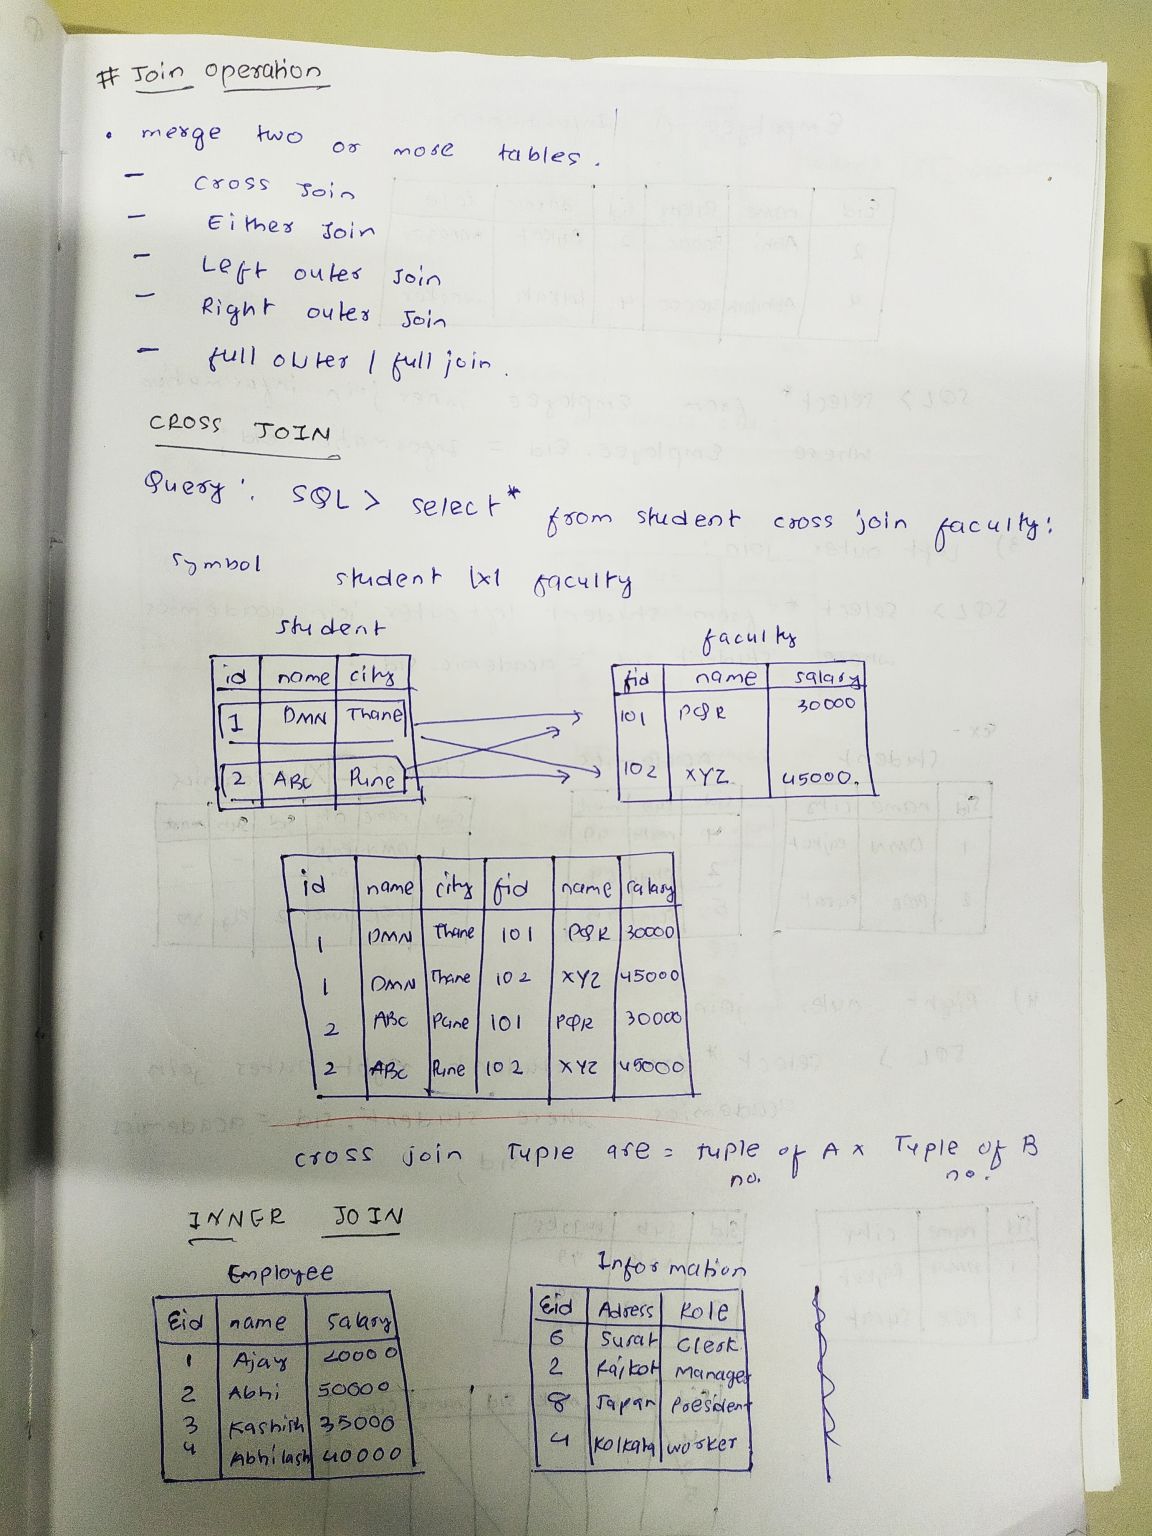 # Join operation
• merge two or more tables.
- cross Join
- Either Join
- Left outer Join
- Right outer Join
- full outer / full join.
CROSS JOIN
Query: SQL > select * from student cross join faculty;
symbol student |x| faculty
student faculty
id name city fid name salary
1 DMN Thane 101 PQR 30000
2 ABC Pune 102 XYZ 45000.
id name city fid name salary
1 DMN Thane 101 PQR 30000
1 DMN Thane 102 XYZ 45000
2 ABC Pune 101 PQR 30000
2 ABC Pune 102 XYZ 45000
cross join Tuple are = tuple of A x Tuple of B
no. no.
INNER JOIN
Employee Information
Eid name salary Eid Adress Role
1 Ajay 20000 6 Surat Clerk
2 Abhi 50000 2 Rajkot Manager
3 Kashish 35000 8 Japan President
4 Abhilash 40000 4 Kolkata worker